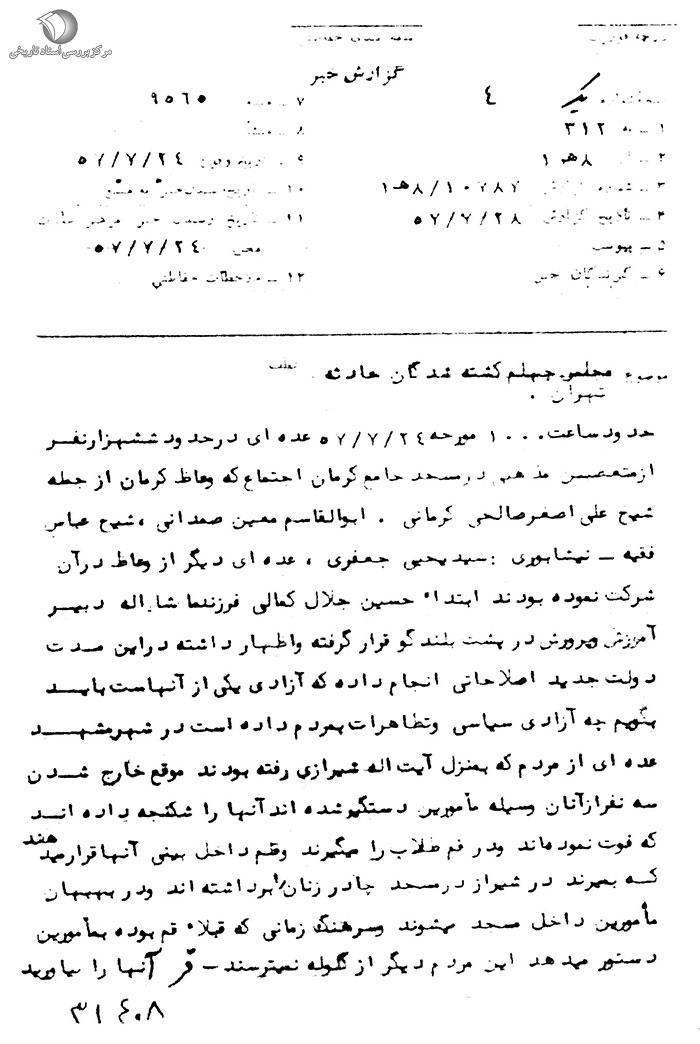 مرکز بررسی اسناد تاریخی
گزارش خبر
یک ۴ ۷ ـ ۹۵۶۵
۱ ـ به ۳۱۲ ۸ ـ منشأ
۲ ـ ۸ هـ ۱ ۹ ـ تاریخ وقوع ۵۷/۷/۲۴
۳ ـ شماره گزارش ۱۰۷۸۷/۸ هـ ۱ ۱۰ ـ تاریخ رسیدن خبر به منبع
۴ ـ تاریخ گزارش ۵۷/۷/۲۸ ۱۱ ـ تاریخ رسیدن خبر برهبر عملیات
۵ ـ پیوست محل ۵۷/۷/۲۴
۶ ـ گیرندگان خبر ۱۲ ـ ملاحظات حفاظتی
موضوع مجلس چهلم کشته شدگان حادثه
تهران .
حدود ساعت ۱۰۰۰ مورخه ۵۷/۷/۲۴ عده ای در حدود ششهزار نفر
از متعصبین مذهبی در مسجد جامع کرمان اجتماع که وعاظ کرمان از جمله
شیخ علی اصغر صالحی کرمانی . ابوالقاسم معین صمدانی ، شیخ عباس
فقیه ـ نیشابوری : سید یحیی جعفری ، عده ای دیگر از وعاظ در آن
شرکت نموده بودند ابتداء حسین جلال کمالی فرزند ماشاء اله دبیر
آموزش و پرورش در پشت بلند گو قرار گرفته و اظهار داشته در این مدت
دولت جدید اصلاحاتی انجام داده که آزادی یکی از آنهاست باید
بگویم چه آزادی سیاسی و تظاهرات بمردم داده است در شهر مشهد
عده ای از مردم که بمنزل آیت اله شیرازی رفته بودند موقع خارج شدن
سه نفر از آنان وسیله مأمورین دستگیر شده اند آنها را شکنجه داده اند
که فوت نموده‌اند و در قم طلاب را میگیرند و قلم داخل بینی آنها قرار میدهند
که بمیرند در شیراز در مسجد چادر زنان را برداشته اند و در بهبهان
مأمورین داخل مسجد میشوند و سرهنگ زمانی که قبلاً قم بوده بمأمورین
دستور میدهد این مردم دیگر از گلوله نمیترسند ـ آنها را بیاورید
۳۱۴۰۸